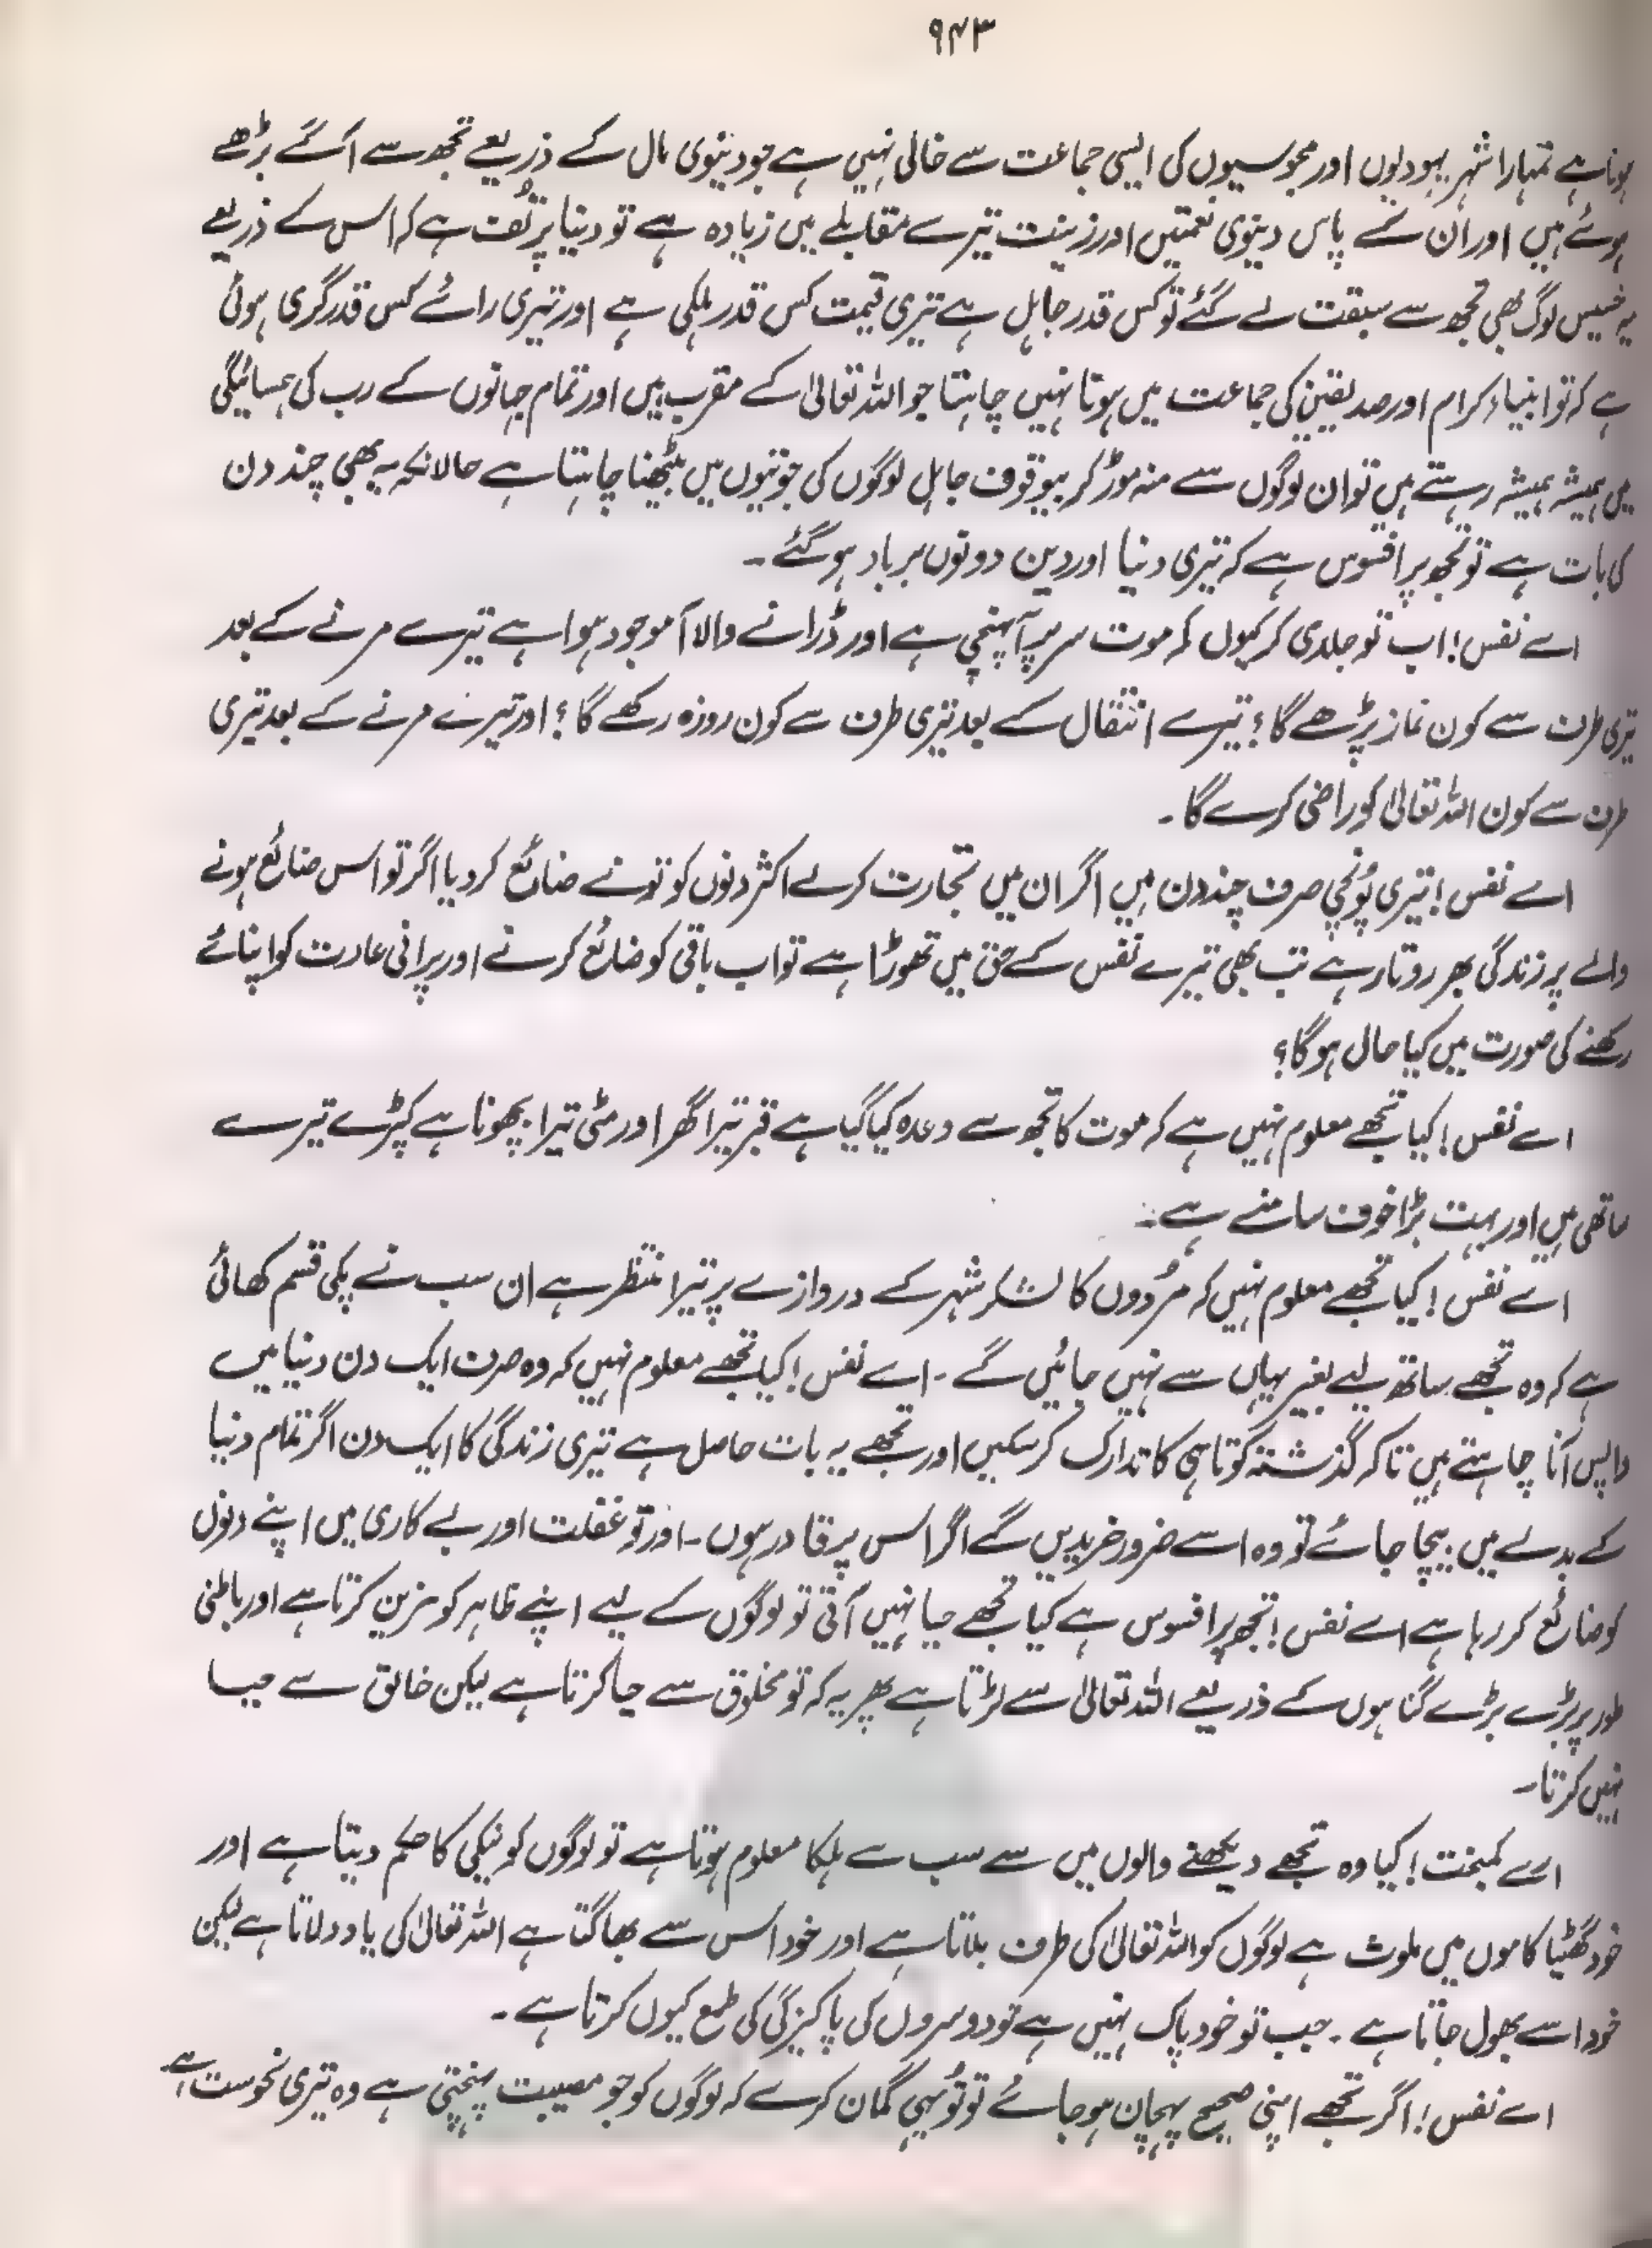 ۹۴۳
ہوتا ہے تمہارا شہر یہودیوں اور مجوسیوں کی ایسی جماعت سے خالی نہیں ہے جو دینوی مال کے ذریعے تجھ سے آگے بڑھے
ہوئے ہیں اور ان کے پاس دینوی نعمتیں اور زینت تیرے مقابلے میں زیادہ ہے تو دنیا پر تُف ہے کہ اس کے ذریعے
یہ خسیس لوگ بھی تجھ سے سبقت لے گئے تو کس قدر جاہل ہے تیری قیمت کس قدر ہلکی ہے اور تیری رائے کس قدر گری ہوئی
ہے کہ تو انبیاء کرام اور صدیقین کی جماعت میں ہوتا نہیں چاہتا جو اللہ تعالیٰ کے مقرب ہیں اور تمام جہانوں کے رب کی ہمسائیگی
میں ہمیشہ ہمیشہ رہتے ہیں تو ان لوگوں سے منہ موڑ کر بیوقوف جاہل لوگوں کی جوتیوں میں بیٹھنا چاہتا ہے حالانکہ یہ بھی چند دن
کی بات ہے تو تجھ پر افسوس ہے کہ تیری دنیا اور دین دونوں برباد ہو گئے ۔
اے نفس! اب تو جلدی کر کیوں کہ موت سر پر آپہنچی ہے اور ڈرانے والا آ موجود ہوا ہے تیرے مرنے کے بعد
تیری طرف سے کون نماز پڑھے گا؟ تیرے انتقال کے بعد تیری طرف سے کون روزہ رکھے گا؟ اور تیرے مرنے کے بعد تیری
طرف سے کون اللہ تعالیٰ کو راضی کرے گا ۔
اے نفس! تیری پُونجی صرف چند دن ہیں اگر ان میں تجارت کرلے اکثر دنوں کو تونے ضائع کر دیا اگر تو اس ضائع ہونے
والے پر زندگی بھر روتا رہے تب بھی تیرے نفس کے حق میں تھوڑا ہے تو اب باقی کو ضائع کرنے اور پرانی عادت کو اپنائے
رکھنے کی صورت میں کیا حال ہو گا؟
اے نفس! کیا تجھے معلوم نہیں ہے کہ موت کا تجھ سے وعدہ کیا گیا ہے قبر تیرا گھر اور مٹی تیرا بچھونا ہے کپڑے تیرے
ساتھی ہیں اور بہت بڑا خوف سامنے ہے۔
اے نفس! کیا تجھے معلوم نہیں کہ مُردوں کا لشکر شہر کے دروازے پر تیرا منتظر ہے ان سب نے پکی قسم کھائی
ہے کہ وہ تجھے ساتھ لیے بغیر یہاں سے نہیں جائیں گے ۔ اے نفس! کیا تجھے معلوم نہیں کہ وہ صرف ایک دن دنیا میں
واپس آنا چاہتے ہیں تاکہ گذشتہ کوتاہی کا تدارک کر سکیں اور تجھے یہ بات حاصل ہے تیری زندگی کا ایک دن اگر تمام دنیا
کے بدلے میں بیچا جائے تو وہ اسے ضرور خریدیں گے اگر اس پر قادر ہوں ۔ اور تو غفلت اور بے کاری میں اپنے دنوں
کو ضائع کر رہا ہے اے نفس! تجھ پر افسوس ہے کیا تجھے حیا نہیں آتی تو لوگوں کے لیے اپنے ظاہر کو مزین کرتا ہے اور باطنی
طور پر بڑے بڑے گناہوں کے ذریعے اللہ تعالیٰ سے لڑتا ہے پھر یہ کہ تو مخلوق سے حیا کرتا ہے لیکن خالق سے حیا
نہیں کرتا۔
ارے کمبخت! کیا وہ تجھے دیکھنے والوں میں سے سب سے ہلکا معلوم ہوتا ہے تو لوگوں کو نیکی کا حکم دیتا ہے اور
خود گھٹیا کاموں میں ملوث ہے لوگوں کو اللہ تعالیٰ کی طرف بلاتا ہے اور خود اس سے بھاگتا ہے اللہ تعالیٰ کی یاد دلاتا ہے لیکن
خود اسے بھول جاتا ہے ۔ جب تو خود پاک نہیں ہے تو دوسروں کی پاکیزگی کی طمع کیوں کرتا ہے ۔
اے نفس! اگر تجھے اپنی صحیح پہچان ہو جائے تو تُو یہی گمان کرے کہ لوگوں کو جو مصیبت پہنچتی ہے وہ تیری نحوست ہے